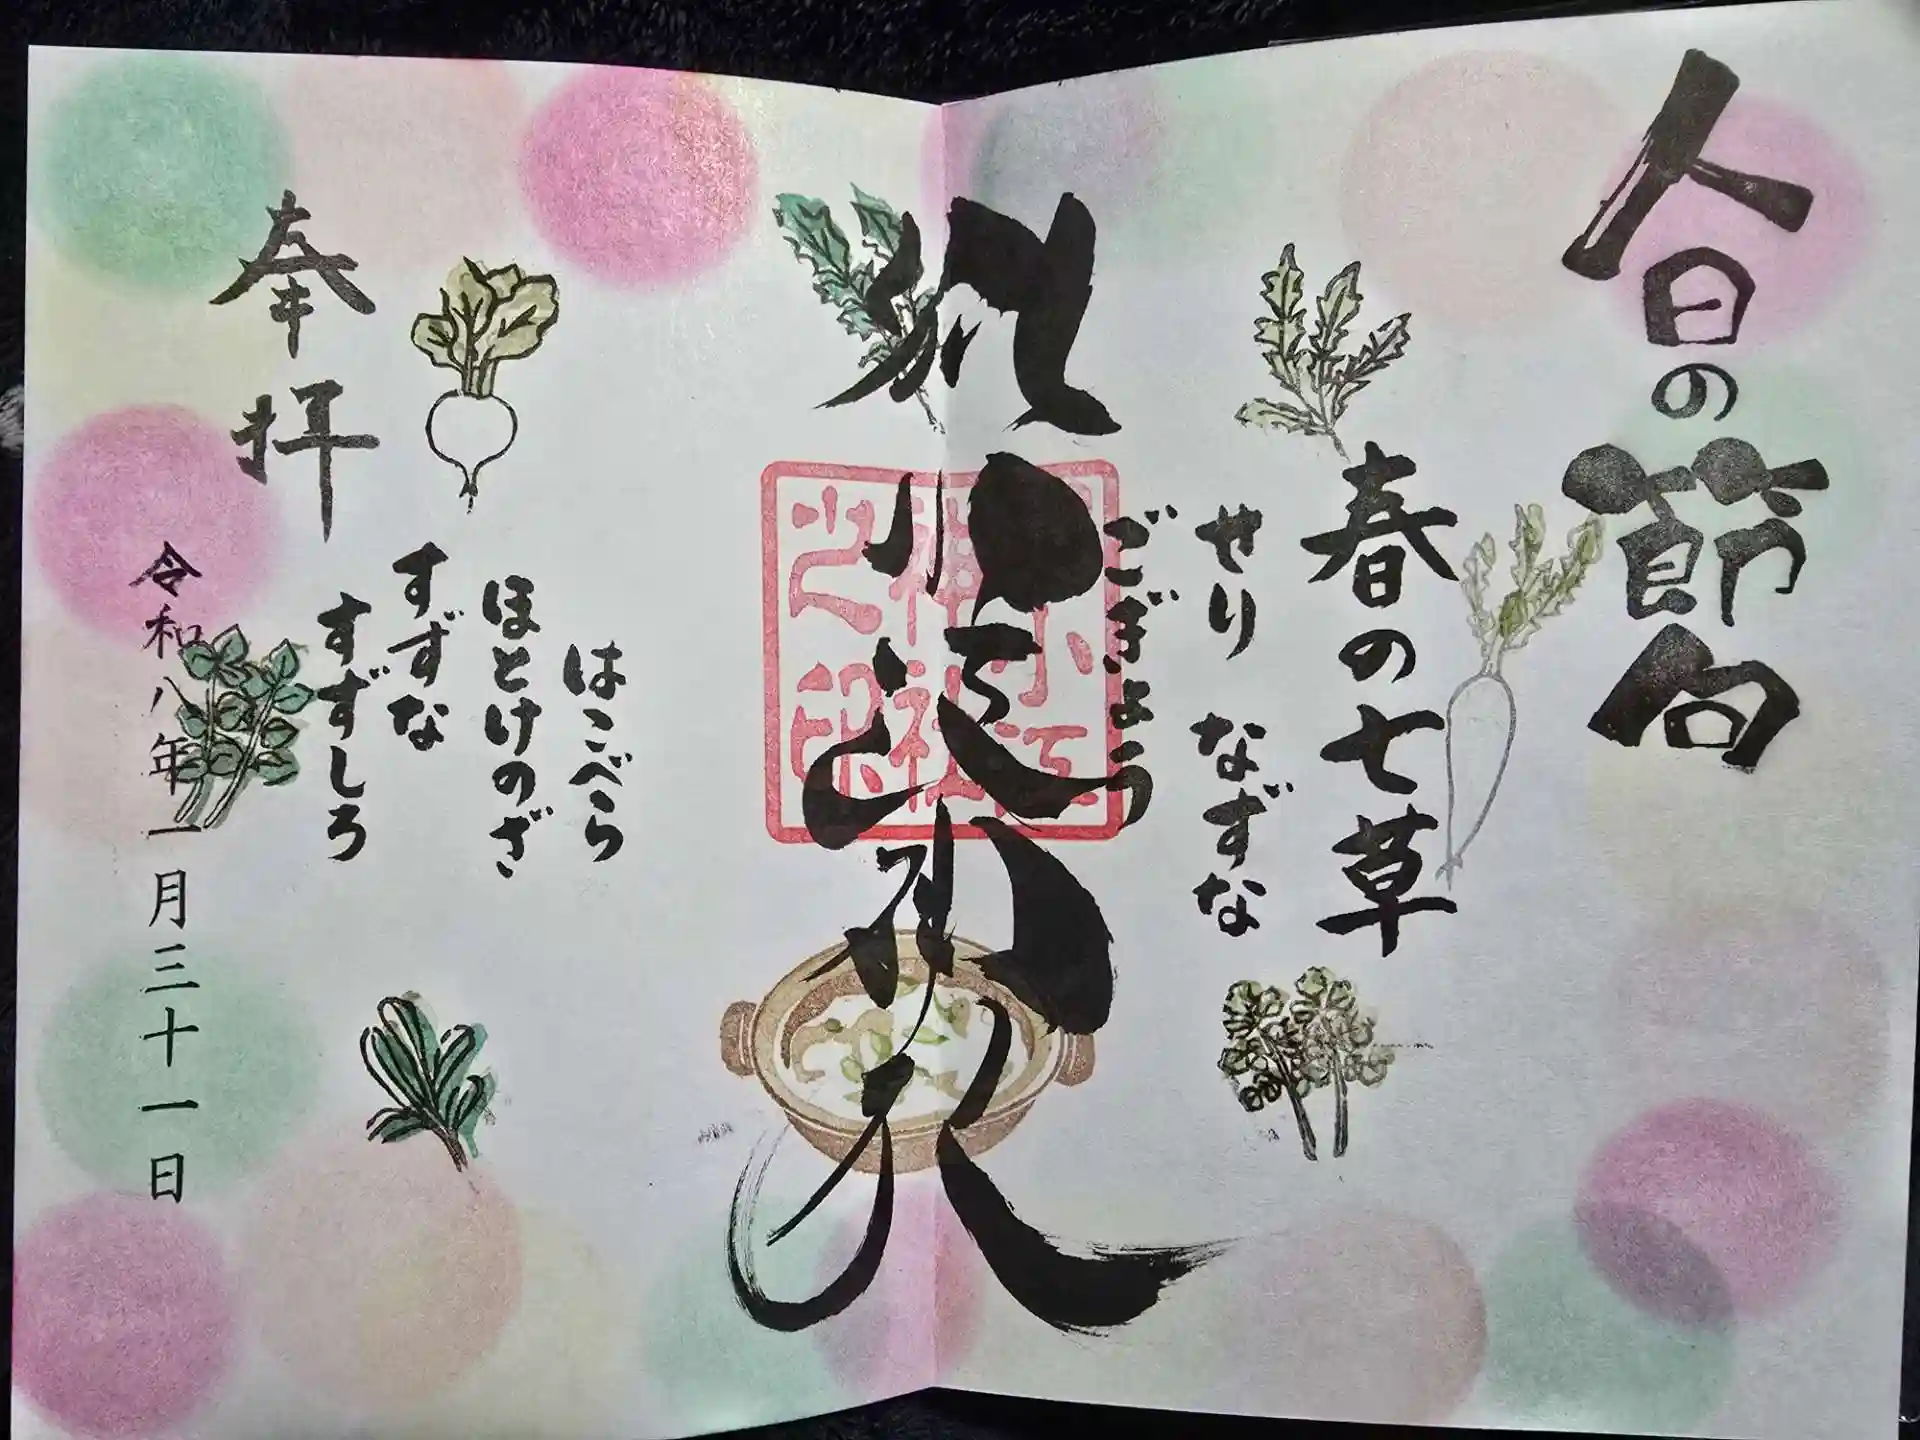 人日の節句
春の七草
せり なずな
ごぎょう
小江
神社
之印
はこべら
ほとけのざ
すずな
すずしろ
奉拝
令和八年一月三十一日